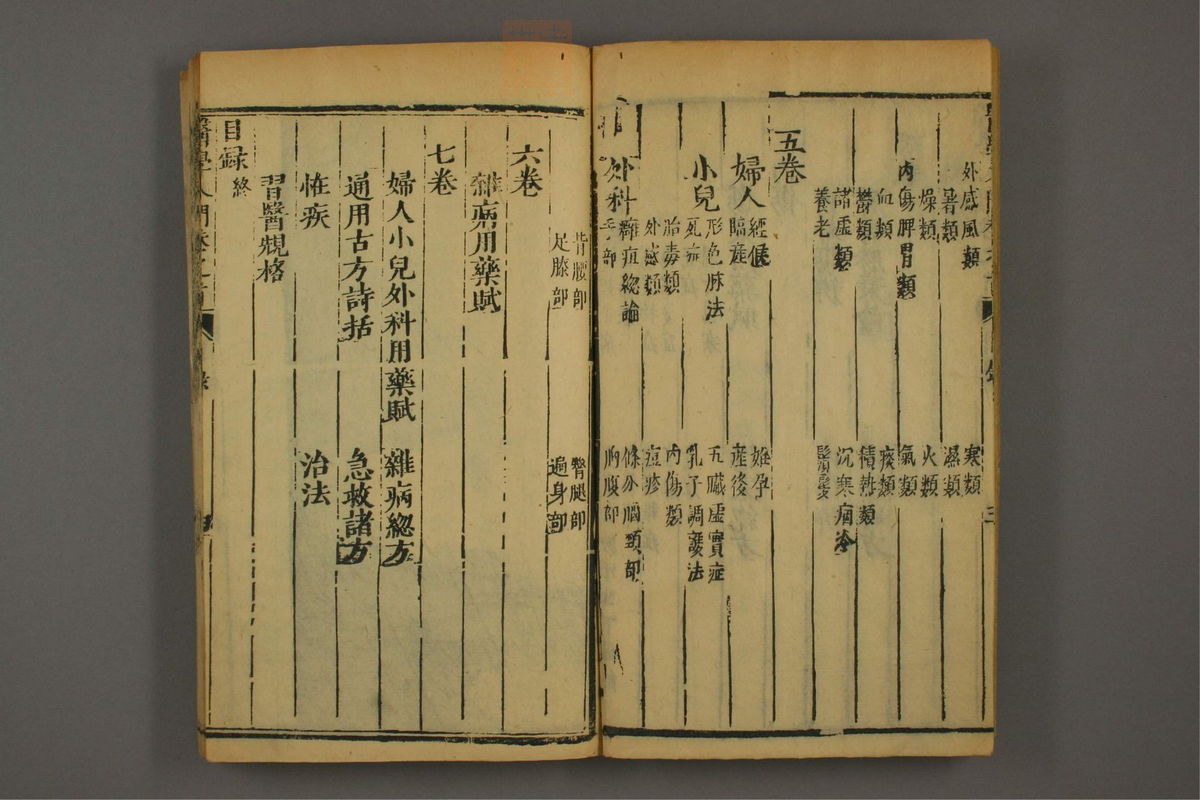 外感風類 寒類
暑類 濕類
燥類 火類
内傷脾胃類 氣類
血類 痰類
鬱類 積熱類
諸虛類 沉寒痼冷
養老
五卷
婦人 經候 姙孕
臨産 産後
小兒 形色脉法 五臟虛實症
死症 乳子調護法
胎毒類 内傷類
外感類 痘疹
外科 癰疽緫論 條分腦頸部
手部 胸腹部
背腰部 臀腿部
足膝部 遍身部
六卷
雜病用藥賦
七卷
婦人小兒外科用藥賦 雜病緫方
通用古方詩括 急救諸方
恠疾 治法
習醫規格
目録終